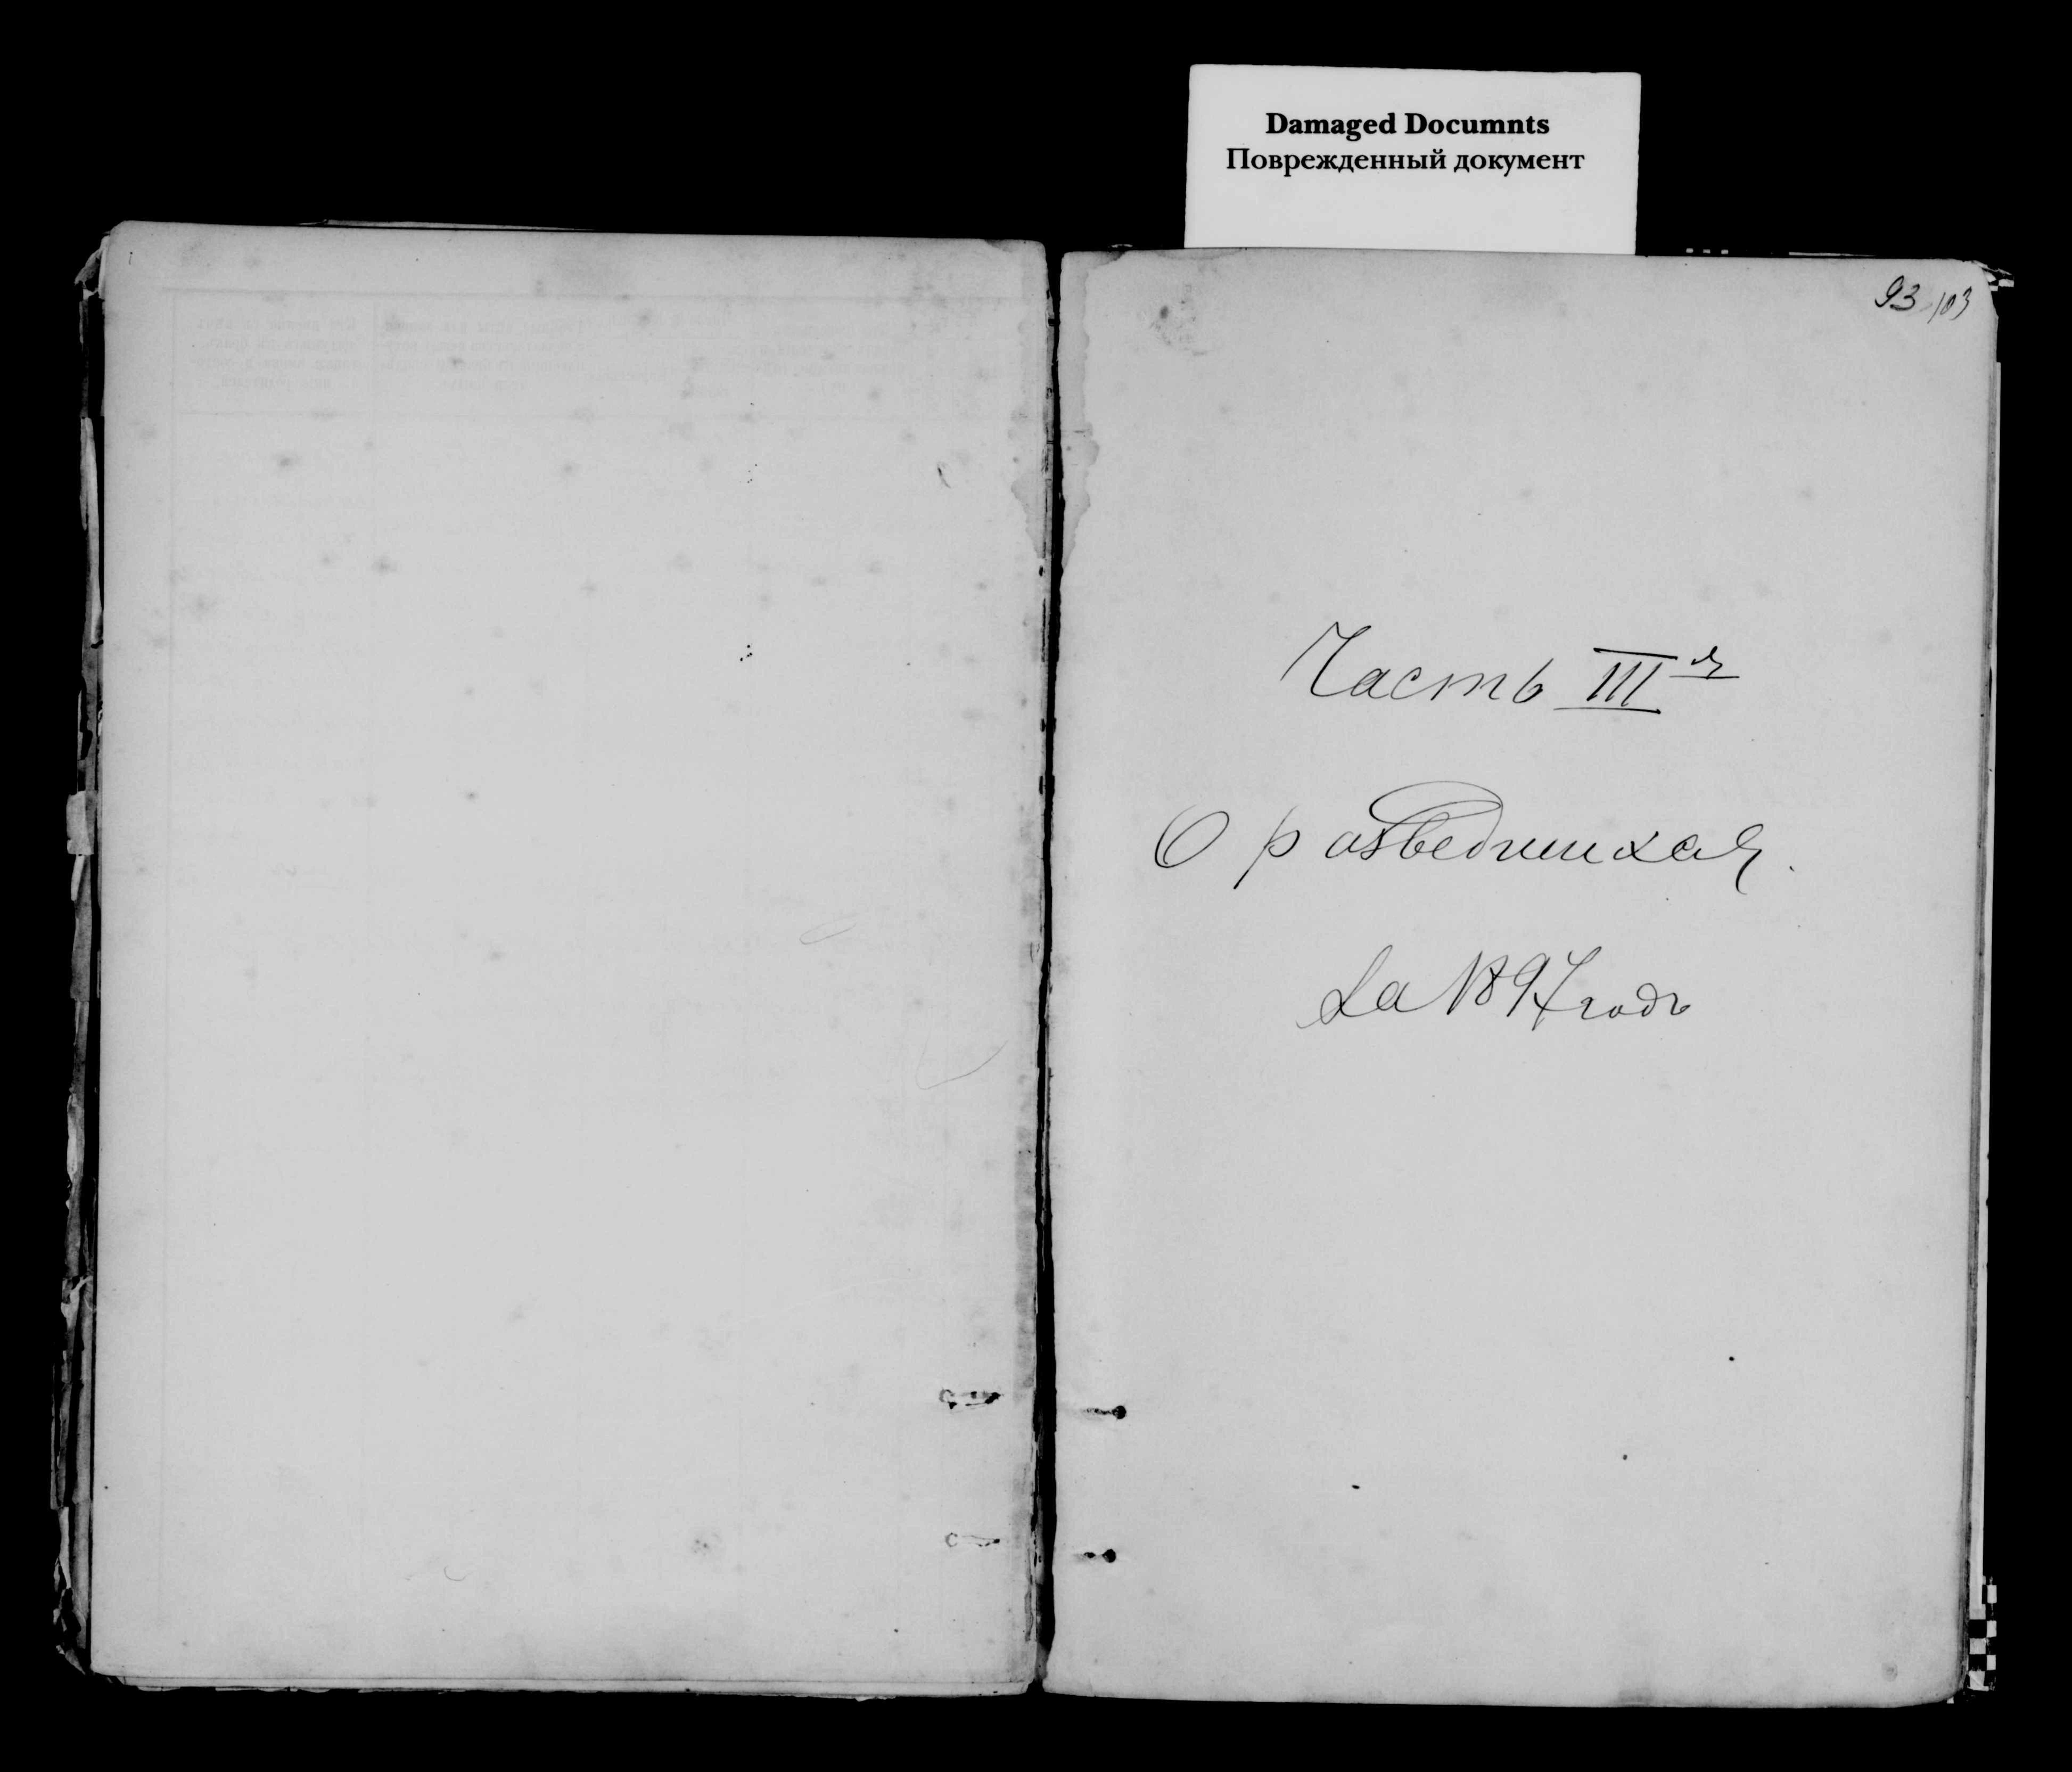 Damaged Documnts
Поврежденный документ
93 103
Часть III я
О разведшихся.
За 1897 годъ